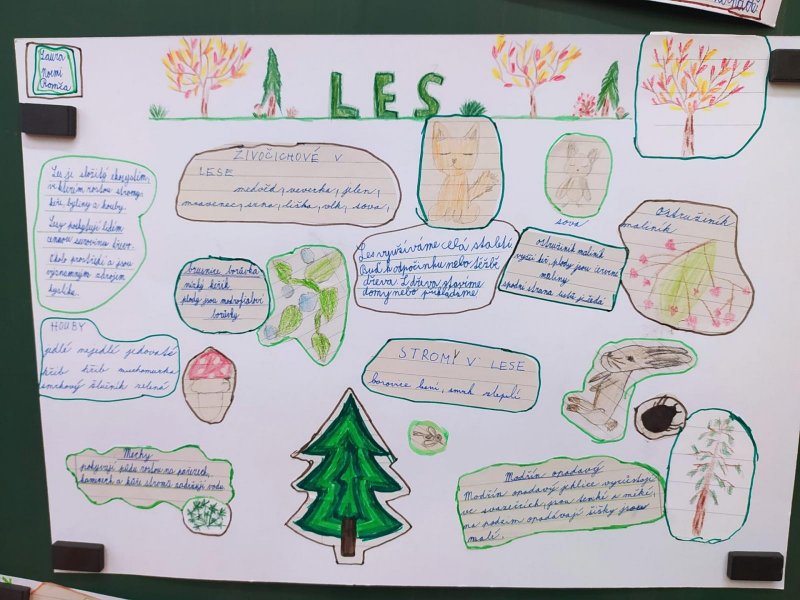 Laura
Noemi
LES
Les je složitý ekosystém,
ve kterém rostou stromy,
keře, byliny a houby.
Lesy poskytují lidem
cennou surovinu dřevo.
životní prostředí a jsou
významným zdrojem
kyslíku.
ŽIVOČICHOVÉ V
LESE
medvěd, veverka, jelen,
mravenec, srna, liška, vlk, sova,
sova
Ostružiník
maliník
brusnice borůvka
nízký keřík
plody jsou modrofialové
borůvky
Les využíváme celá staletí
Buď k odpočinku nebo těžbě
dřeva. Z dřeva stavíme
domy nebo překládáme
Ostružiník maliník
vyšší keř, plody jsou červené
maliny
spodní strana listů je šedá
HOUBY
jedlé nejedlé jedovaté
hřib hřib muchomůrka
smrkový žlučník zelená
STROMY V LESE
borovice lesní, smrk ztepilý
Mechy
pokrývají půdu rostou na pařezech,
kamenech a kůře stromů zadržují vodu
Modřín opadavý
Modřín opadavý jehlice vyrůstají
ve svazečcích, jsou tenké a měkké,
na podzim opadávají šišky jsou
malé.